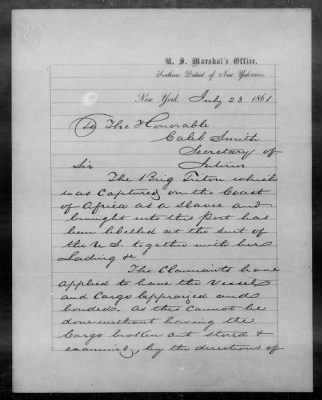 U. S. Marshal's Office,
Southern District of New York
New York, July 23 1861
To The Honorable
Caleb Smith
Secretary of
Sir Interior
The Brig Triton which
was captured on the Coast
of Africa as a slaver and
brought into this Port has
been libelled at the suit of
the U.S. together with her
Lading &c.
The Claimants have
applied to have the Vessel
and Cargo Appraized and
bonded. As this cannot be
done without having the
Cargo broken out stored &
examined, by the directions of